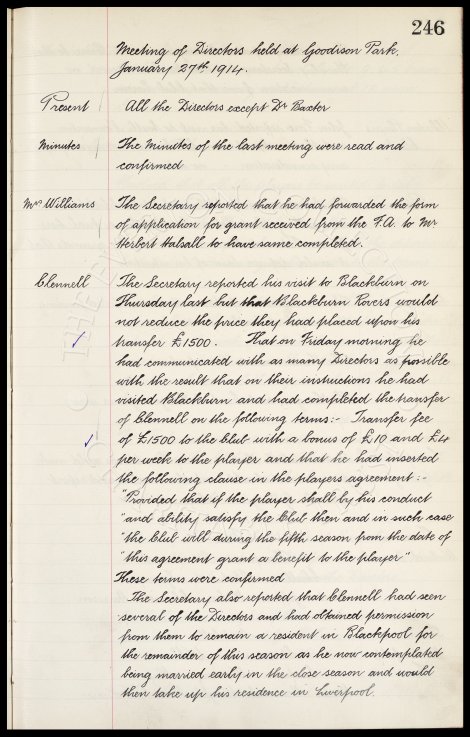 246
Meeting of Directors held at Goodison Park,
January 27th 1914.
Present All the Directors except Dr Baxter
Minutes The Minutes of the last meeting were read and
confirmed
Mrs Williams The Secretary reported that he had forwarded the form
of application for grant received from the F.A. to Mr
Herbert Halsall to have same completed.
Clennell The Secretary reported his visit to Blackburn on
Thursday last but that Blackburn Rovers would
not reduce the price they had placed upon his
transfer £1500. That on Friday morning he
had communicated with as many Directors as possible
with the result that on their instructions he had
visited Blackburn and had completed the transfer
of Clennell on the following terms:- Transfer fee
of £1500 to the Club with a bonus of £10 and £4
per week to the player and that he had inserted
the following clause in the players agreement:-
"Provided that if the player shall by his conduct
"and ability satisfy the Club then and in such case
"the Club will during the fifth season from the date of
"this agreement grant a benefit to the player"
These terms were confirmed
The Secretary also reported that Clennell had seen
several of the Directors and had obtained permission
from them to remain a resident in Blackpool for
the remainder of this season as he now contemplated
being married early in the close season and would
then take up his residence in Liverpool.